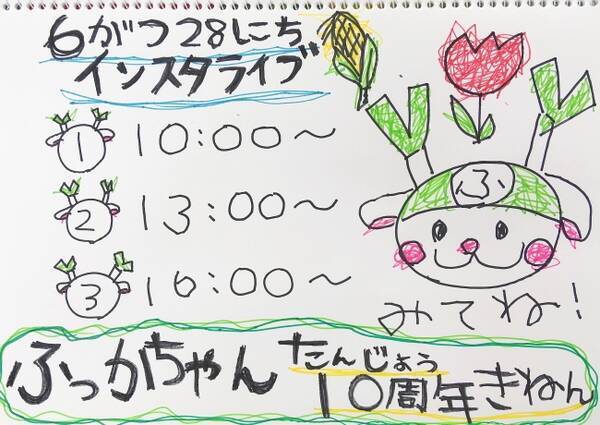 6がつ28にち
インスタライブ
① 10:00～
② 13:00～
③ 16:00～
ふ
みてね!
ふっかちゃん たんじょう
10周年きねん